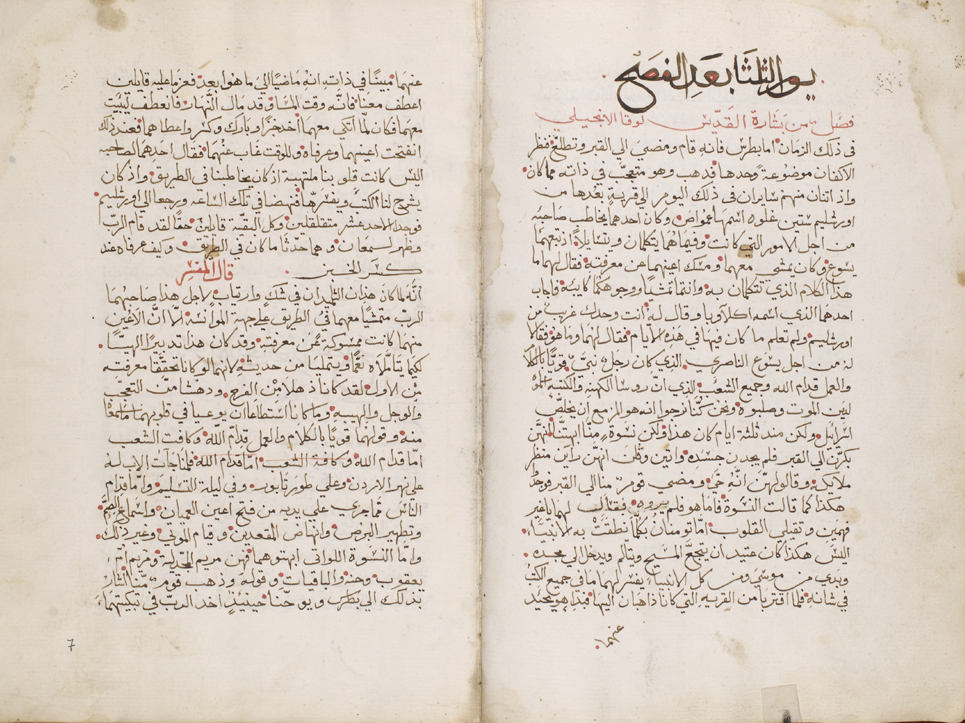 يوم الثلثا بعد الفصح
فصل من بشارة القديس لوقا الانجيلي
فى ذلك الزمان اما بطرس فانه قام ومضى الي القبر وتطلع فنظر
الاكفان موضوعة وحدها فذهب وهو متعجب فى ذاته مما كان
واذ اثنان منهم سايران فى ذلك اليوم الي قرية بعدها من
اورشليم ستين غلوه اسمها عمواص وكان احدهما يخاطب صاحبه
من اجل الامور التي كانت وفيما هما يتكلمان ويتسايلا اذ تبعهما
يسوع وكان يمشي معهما ومسك اعينهما عن معرفته فقال لهما ما
هذا الكلام الذي تتكلمان به وانتما تمشيا ووجوهكما كايبة فاجاب
احدهما الذي اسمه اكلاوبا وقال له أنت وحدك غريب من
اورشليم ولم تعلم ما كان فيها في هذه الايام فقال لهما وما هو فقالا
له من اجل يسوع الناصري الذي كان رجل نبي قويا بالكلام
والعمل قدام الله وجميع الشعب الذي ان روسا الكهنه والكتبه
لدين الموت وصلبوه ونحن كنا نرجوا انه هو المزمع ان يخلص
اسرائيل ولكن منذ ثلثة ايام كان هذا ولكن نسوة منا
بكرن الي القبر فلم يجدن جسده واتين وقلن انهن راين منظر
ملايكة وقالو لهن انه حي ومضى قوم منا الي القبر فوجدوا
هكذا كما قالت النسوة فاما هو فلم يروه فقال لهما ياغير
فهمين وثقيلي القلوب اما تومنان بكلما نطقت به الانبياء
اليس هكذا كان عتيد ان يتجع المسيح ويتالم ويدخل الي مجده
وبدى من موسى ومن كل الانبياء يفسر لهما ما في جميع الكتب
في شانه فلما اقتربا من القرية التي كانا ذاهبان اليها فبدا هو يبعد
عنهما
عنهما مبينا في ذاته انه ماضيا الي ما هو ابعد فعزما عليه قايلين
اعطف معنا فانه وقت المسا وقد مال النهار فانعطف ليبيت
معهما فكان لما اتكي معهما أخذ خبزا وبارك وكسر واعطاهما فعند ذلك
انفتحت اعينهما وعرفاه وللوقت غاب عنهما فقال احدهما لصاحبه
اليس كانت قلوبنا ملتهبة اذ كان يخاطبنا في الطريق واذ كان
يشرح لنا الكتب ويفسرها فنهضا في تلك الساعه ورجعا الي اورشليم
فوجدا الاحد عشر متفلفلين وكل البقية قايلين حقا لقد قام الرب
وظهر لسمعان وهما حدثا ما كان في الطريق وكيف عرفاه عند
كسر الخبز قال المفسر
أنه لما كان هذان التلميذان في شك وارتياب لاجل هذا صاحبهما
الرب متمشيا معهما في الطريق على جهة الموانسة الا ان الاعين
منهما كانت ممسوكة عن معرفته وقد كان هذا تدبيرا الهيا
لكيما يتاملاه نعما ويتمليا من حديثه لانهما لو كانا تحققا معرفته
من الاول لقد كانا ذهلا من الفرح ودهشا من التعجب
والوجل والهيبه وما كانا استطاعا ان يوعيا في قلوبهما
منه وقولهما قويا بالكلام والعمل قدام الله وكافت الشعب
اما قدام الله وكافة الشعب اما قدام الله فلمناجات الاب له
على نهر الاردن وعلي طور تابور وفي ليلة التسليم واما قدام
الناس فما جرى على يديه من فتح اعين العميان واسماع الصم
وتطهير البرص وانهاض المقعدين وقيام الموتى وغير ذلك
واما النسوة اللواتى ابهتوهما فهن مريم المجدلية ومريم ام
يعقوب وحنة والباقيات وقوله وذهب قوم منا اشار
بذلك الي بطرس ويوحنا حينيذ اخذ الرب في تبكيتهما
7